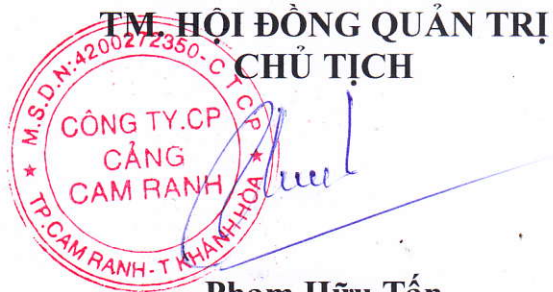 TM. HỘI ĐỒNG QUẢN TRỊ
CHỦ TỊCH
M.S.D.N:4200272350-C.T.C.P
CÔNG TY.CP
CẢNG
CAM RANH
TP.CAM RANH-T KHÁNH HÒA
Phạm Hữu Tấn